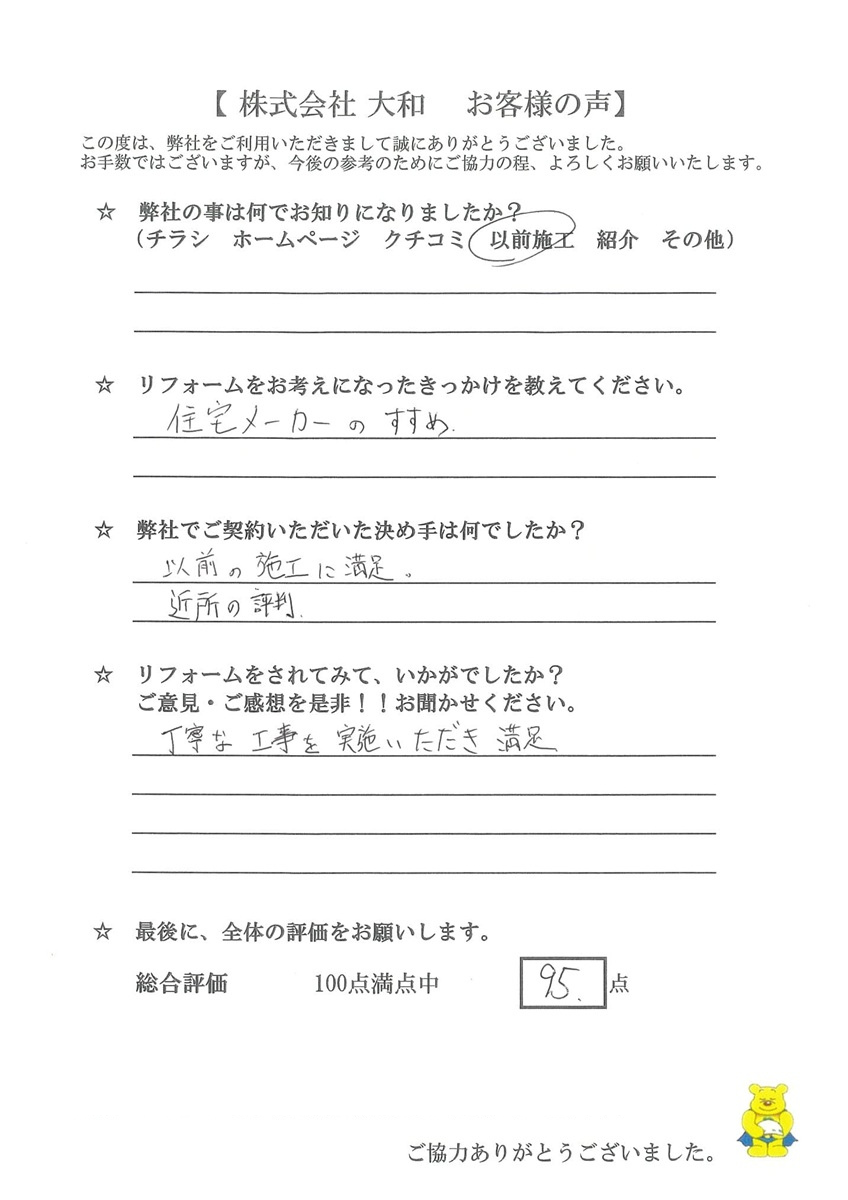 【 株式会社 大和　お客様の声】
この度は、弊社をご利用いただきまして誠にありがとうございました。
お手数ではございますが、今後の参考のためにご協力の程、よろしくお願いいたします。
☆　弊社の事は何でお知りになりましたか？
（チラシ　ホームページ　クチコミ　以前施工　紹介　その他）
☆　リフォームをお考えになったきっかけを教えてください。
住宅メーカーのすすめ.
☆　弊社でご契約いただいた決め手は何でしたか？
以前の施工に満足。
近所の評判.
☆　リフォームをされてみて、いかがでしたか？
ご意見・ご感想を是非！！お聞かせください。
丁寧な工事を実施いただき満足
☆　最後に、全体の評価をお願いします。
総合評価　100点満点中　95.点
ご協力ありがとうございました。